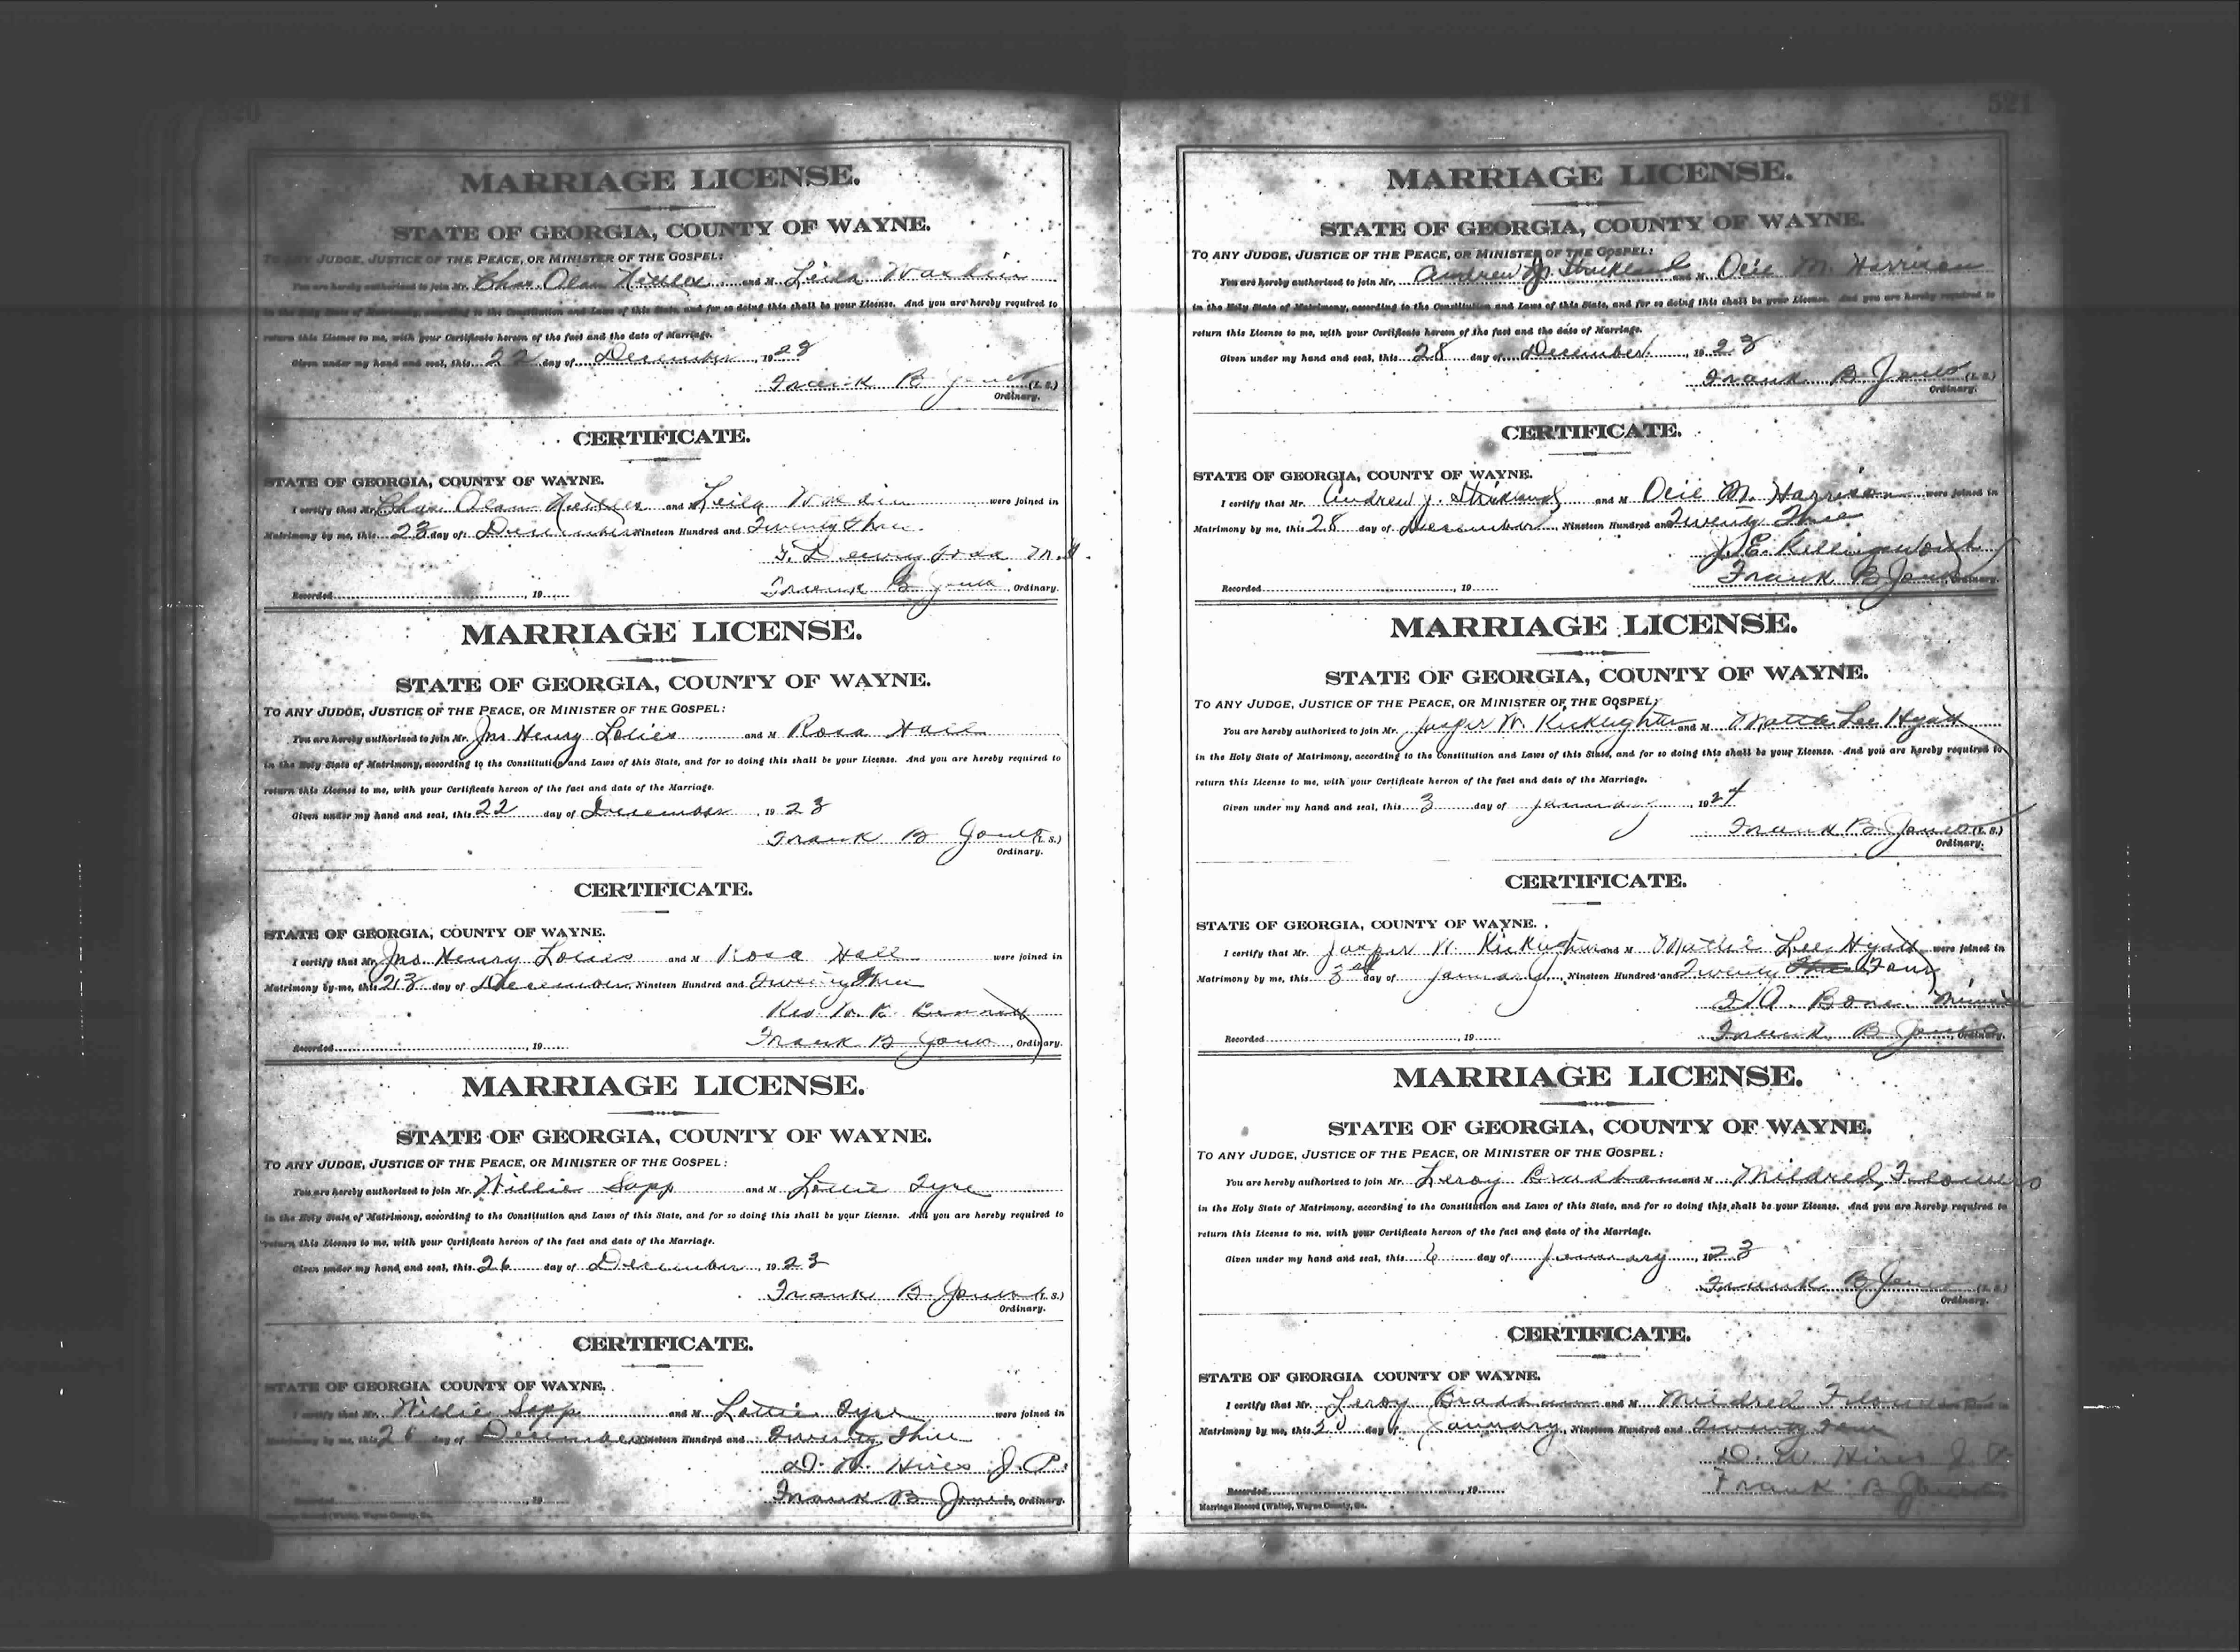 520
MARRIAGE LICENSE.
STATE OF GEORGIA, COUNTY OF WAYNE.
TO ANY JUDGE, JUSTICE OF THE PEACE, OR MINISTER OF THE GOSPEL:
You are hereby authorized to join Mr. Chas and M Leila
in the Holy State of Matrimony, according to the Constitution and Laws of this State, and for so doing this shall be your License. And you are hereby required to
return this License to me, with your Certificate hereon of the fact and the date of Marriage.
Given under my hand and seal, this 22 day of December, 1923
Frank B Jones (L. S.)
Ordinary.
CERTIFICATE.
STATE OF GEORGIA, COUNTY OF WAYNE.
I certify that Mr. and Leila were joined in
Matrimony by me, this 23 day of December Nineteen Hundred and Twenty three
Frank B Jones, Ordinary.
Recorded , 19
MARRIAGE LICENSE.
STATE OF GEORGIA, COUNTY OF WAYNE.
TO ANY JUDGE, JUSTICE OF THE PEACE, OR MINISTER OF THE GOSPEL:
You are hereby authorized to join Mr. Jno Henry and M Rosa Hall
in the Holy State of Matrimony, according to the Constitution and Laws of this State, and for so doing this shall be your License. And you are hereby required to
return this License to me, with your Certificate hereon of the fact and date of the Marriage.
Given under my hand and seal, this 22 day of December, 1923
Frank B Jones (L. S.)
Ordinary.
CERTIFICATE.
STATE OF GEORGIA, COUNTY OF WAYNE.
I certify that Mr. Jno Henry and M Rosa Hall were joined in
Matrimony by me, this 23 day of December, Nineteen Hundred and Twenty Three
Rev.
Frank B Jones, Ordinary.
Recorded , 19
MARRIAGE LICENSE.
STATE OF GEORGIA, COUNTY OF WAYNE.
TO ANY JUDGE, JUSTICE OF THE PEACE, OR MINISTER OF THE GOSPEL:
You are hereby authorized to join Mr. Willie Sapp and M Lottie Tyre
in the Holy State of Matrimony, according to the Constitution and Laws of this State, and for so doing this shall be your License. And you are hereby required to
return this License to me, with your Certificate hereon of the fact and date of the Marriage.
Given under my hand and seal, this 26 day of December, 1923
Frank B. Jones (L. S.)
Ordinary.
CERTIFICATE.
STATE OF GEORGIA COUNTY OF WAYNE.
I certify that Mr. Willie Sapp and M Lottie Tyre were joined in
Matrimony by me, this 26 day of December Nineteen Hundred and Twenty Three
D. W. Hires J. P.
Frank B Jones, Ordinary.
Recorded , 19
Marriage Record (White), Wayne County, Ga.
521
MARRIAGE LICENSE.
STATE OF GEORGIA, COUNTY OF WAYNE.
TO ANY JUDGE, JUSTICE OF THE PEACE, OR MINISTER OF THE GOSPEL:
You are hereby authorized to join Mr. Andrew J. Strickland and M Ocie M. Harrison
in the Holy State of Matrimony, according to the Constitution and Laws of this State, and for so doing this shall be your License. And you are hereby required to
return this License to me, with your Certificate hereon of the fact and the date of Marriage.
Given under my hand and seal, this 28 day of December, 1923
Frank B. Jones (L. S.)
Ordinary.
CERTIFICATE.
STATE OF GEORGIA, COUNTY OF WAYNE.
I certify that Mr. Andrew J. Strickland and M Ocie M. Harrison were joined in
Matrimony by me, this 28 day of December, Nineteen Hundred and Twenty Three
J. E. Killingsworth
Frank B Jones, Ordinary.
Recorded , 19
MARRIAGE LICENSE.
STATE OF GEORGIA, COUNTY OF WAYNE.
TO ANY JUDGE, JUSTICE OF THE PEACE, OR MINISTER OF THE GOSPEL:
You are hereby authorized to join Mr. Jasper W. Kicklighter and M Mattie Lee Hyatt
in the Holy State of Matrimony, according to the Constitution and Laws of this State, and for so doing this shall be your License. And you are hereby required to
return this License to me, with your Certificate hereon of the fact and date of the Marriage.
Given under my hand and seal, this 3 day of January, 1924
Frank B. Jones (L. S.)
Ordinary.
CERTIFICATE.
STATE OF GEORGIA, COUNTY OF WAYNE.
I certify that Mr. Jasper W. Kicklighter and M Mattie Lee Hyatt were joined in
Matrimony by me, this 3rd day of January, Nineteen Hundred and Twenty Four
Minister
Frank B Jones, Ordinary.
Recorded , 19
MARRIAGE LICENSE.
STATE OF GEORGIA, COUNTY OF WAYNE.
TO ANY JUDGE, JUSTICE OF THE PEACE, OR MINISTER OF THE GOSPEL:
You are hereby authorized to join Mr. Leroy Bradham and M Mildred Flowers
in the Holy State of Matrimony, according to the Constitution and Laws of this State, and for so doing this shall be your License. And you are hereby required to
return this License to me, with your Certificate hereon of the fact and date of the Marriage.
Given under my hand and seal, this 6 day of January, 1923
Frank B Jones (L. S.)
Ordinary.
CERTIFICATE.
STATE OF GEORGIA COUNTY OF WAYNE.
I certify that Mr. Leroy Bradham and M Mildred Flowers
Matrimony by me, this 20 day of January, Nineteen Hundred and Twenty Four
D. W. Hires J. P.
Frank B Jones
Recorded , 19
Marriage Record (White), Wayne County, Ga.